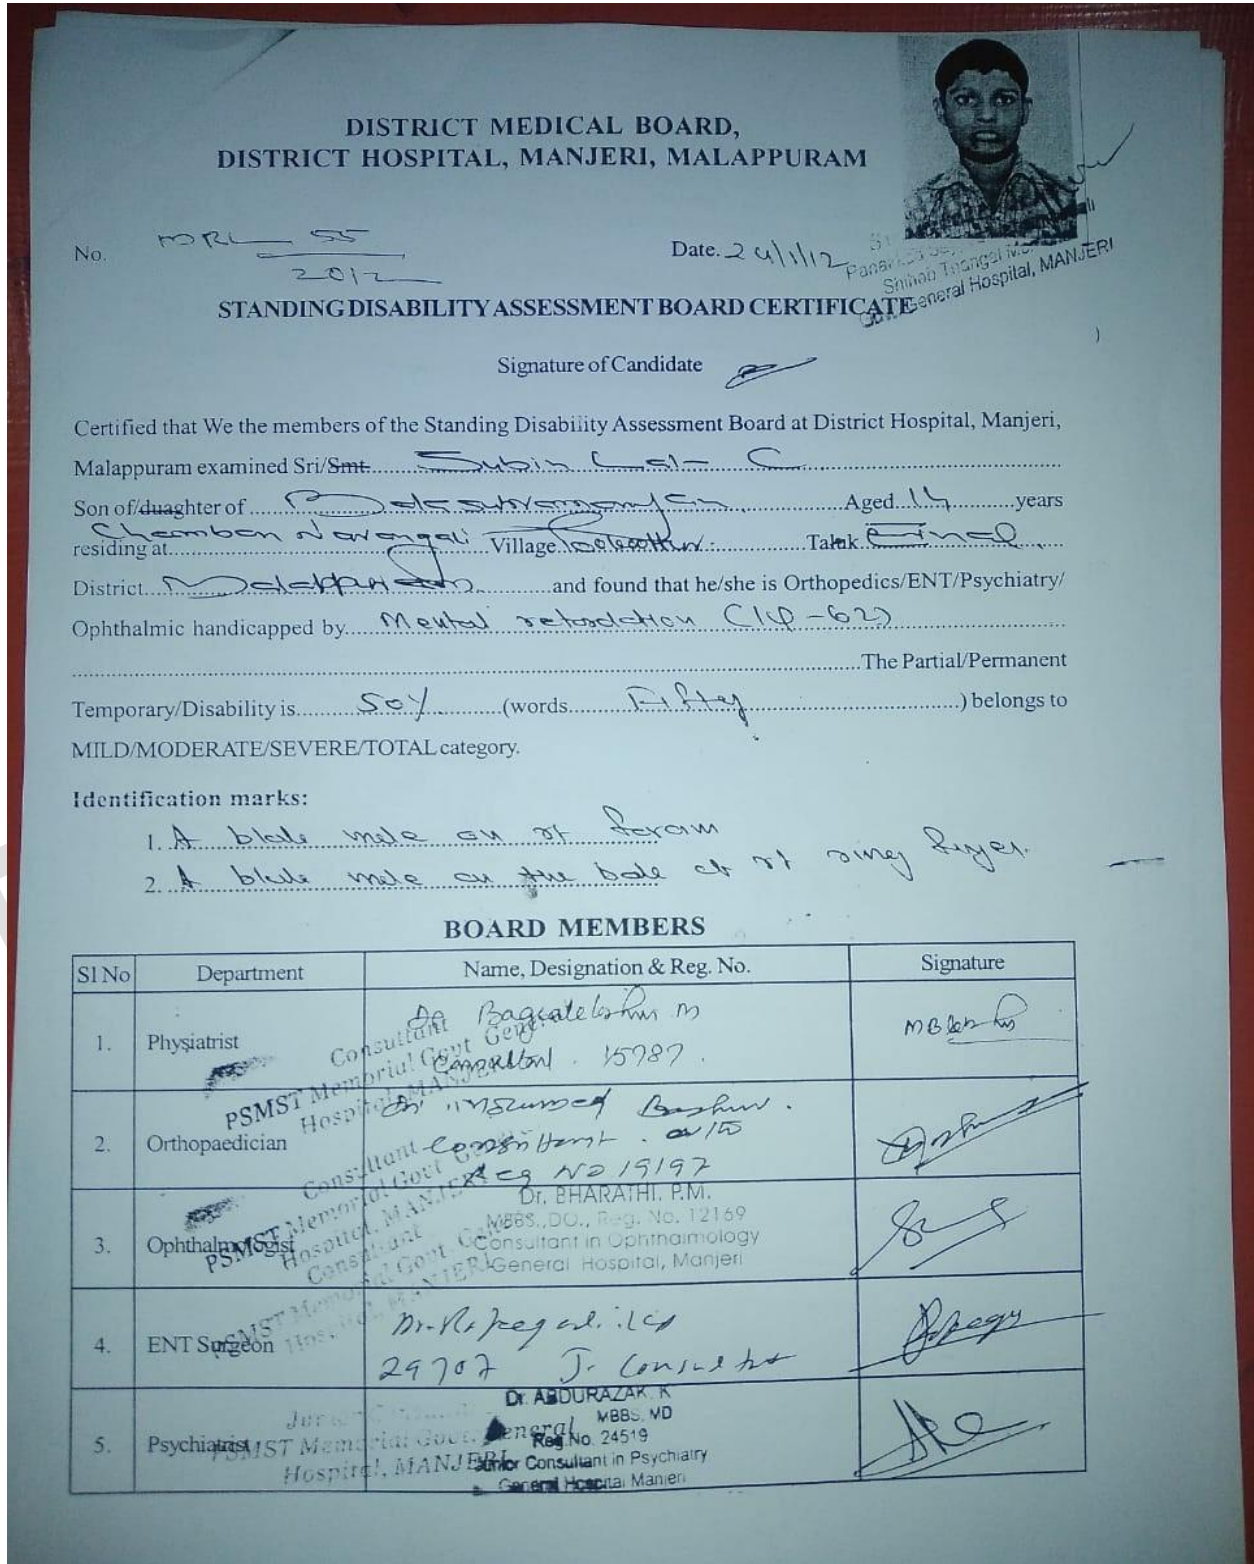 DISTRICT MEDICAL BOARD,
DISTRICT HOSPITAL, MANJERI, MALAPPURAM
No. MRL 55
2012
Date. 24/1/12
Shihab Thangal
General Hospital, MANJERI
STANDING DISABILITY ASSESSMENT BOARD CERTIFICATE
Signature of Candidate
Certified that We the members of the Standing Disability Assessment Board at District Hospital, Manjeri,
Malappuram examined Sri/Smt. Subin Lal C
Son of/duaghter of Balasubramanyan Aged 14 years
residing at Village Taluk Ernad
District Malappuram and found that he/she is Orthopedics/ENT/Psychiatry/
Ophthalmic handicapped by Mental retardation (IQ-62)
The Partial/Permanent
Temporary/Disability is 50% (words Fifty ) belongs to
MILD/MODERATE/SEVERE/TOTAL category.
Identification marks:
1. A on rt
2. A on the of rt ring finger.
BOARD MEMBERS
Sl No Department Name, Designation & Reg. No. Signature
1. Physiatrist Dr M
Consultant 15787.
Consultant
PSMST Memorial Govt General
Hospital, MANJERI
2. Orthopaedician Dr
Consultant
Reg No 19197
Consultant
PSMST Memorial Govt General
Hospital, MANJERI
3. Ophthalmologist Dr. BHARATHI. P.M.
MBBS.,DO., Reg. No. 12169
Consultant in Ophthalmology
General Hospital, Manjeri
Consultant
PSMST Memorial Govt. General
Hospital, MANJERI
4. ENT Surgeon Dr.
29707 Jr Consultant
5. Psychiatrist Dr. ABDURAZAK. K
MBBS. MD
Reg.No. 24519
Junior Consultant in Psychiatry
General Hospital Manjeri
PSMST Memorial Govt. General
Hospital, MANJERI